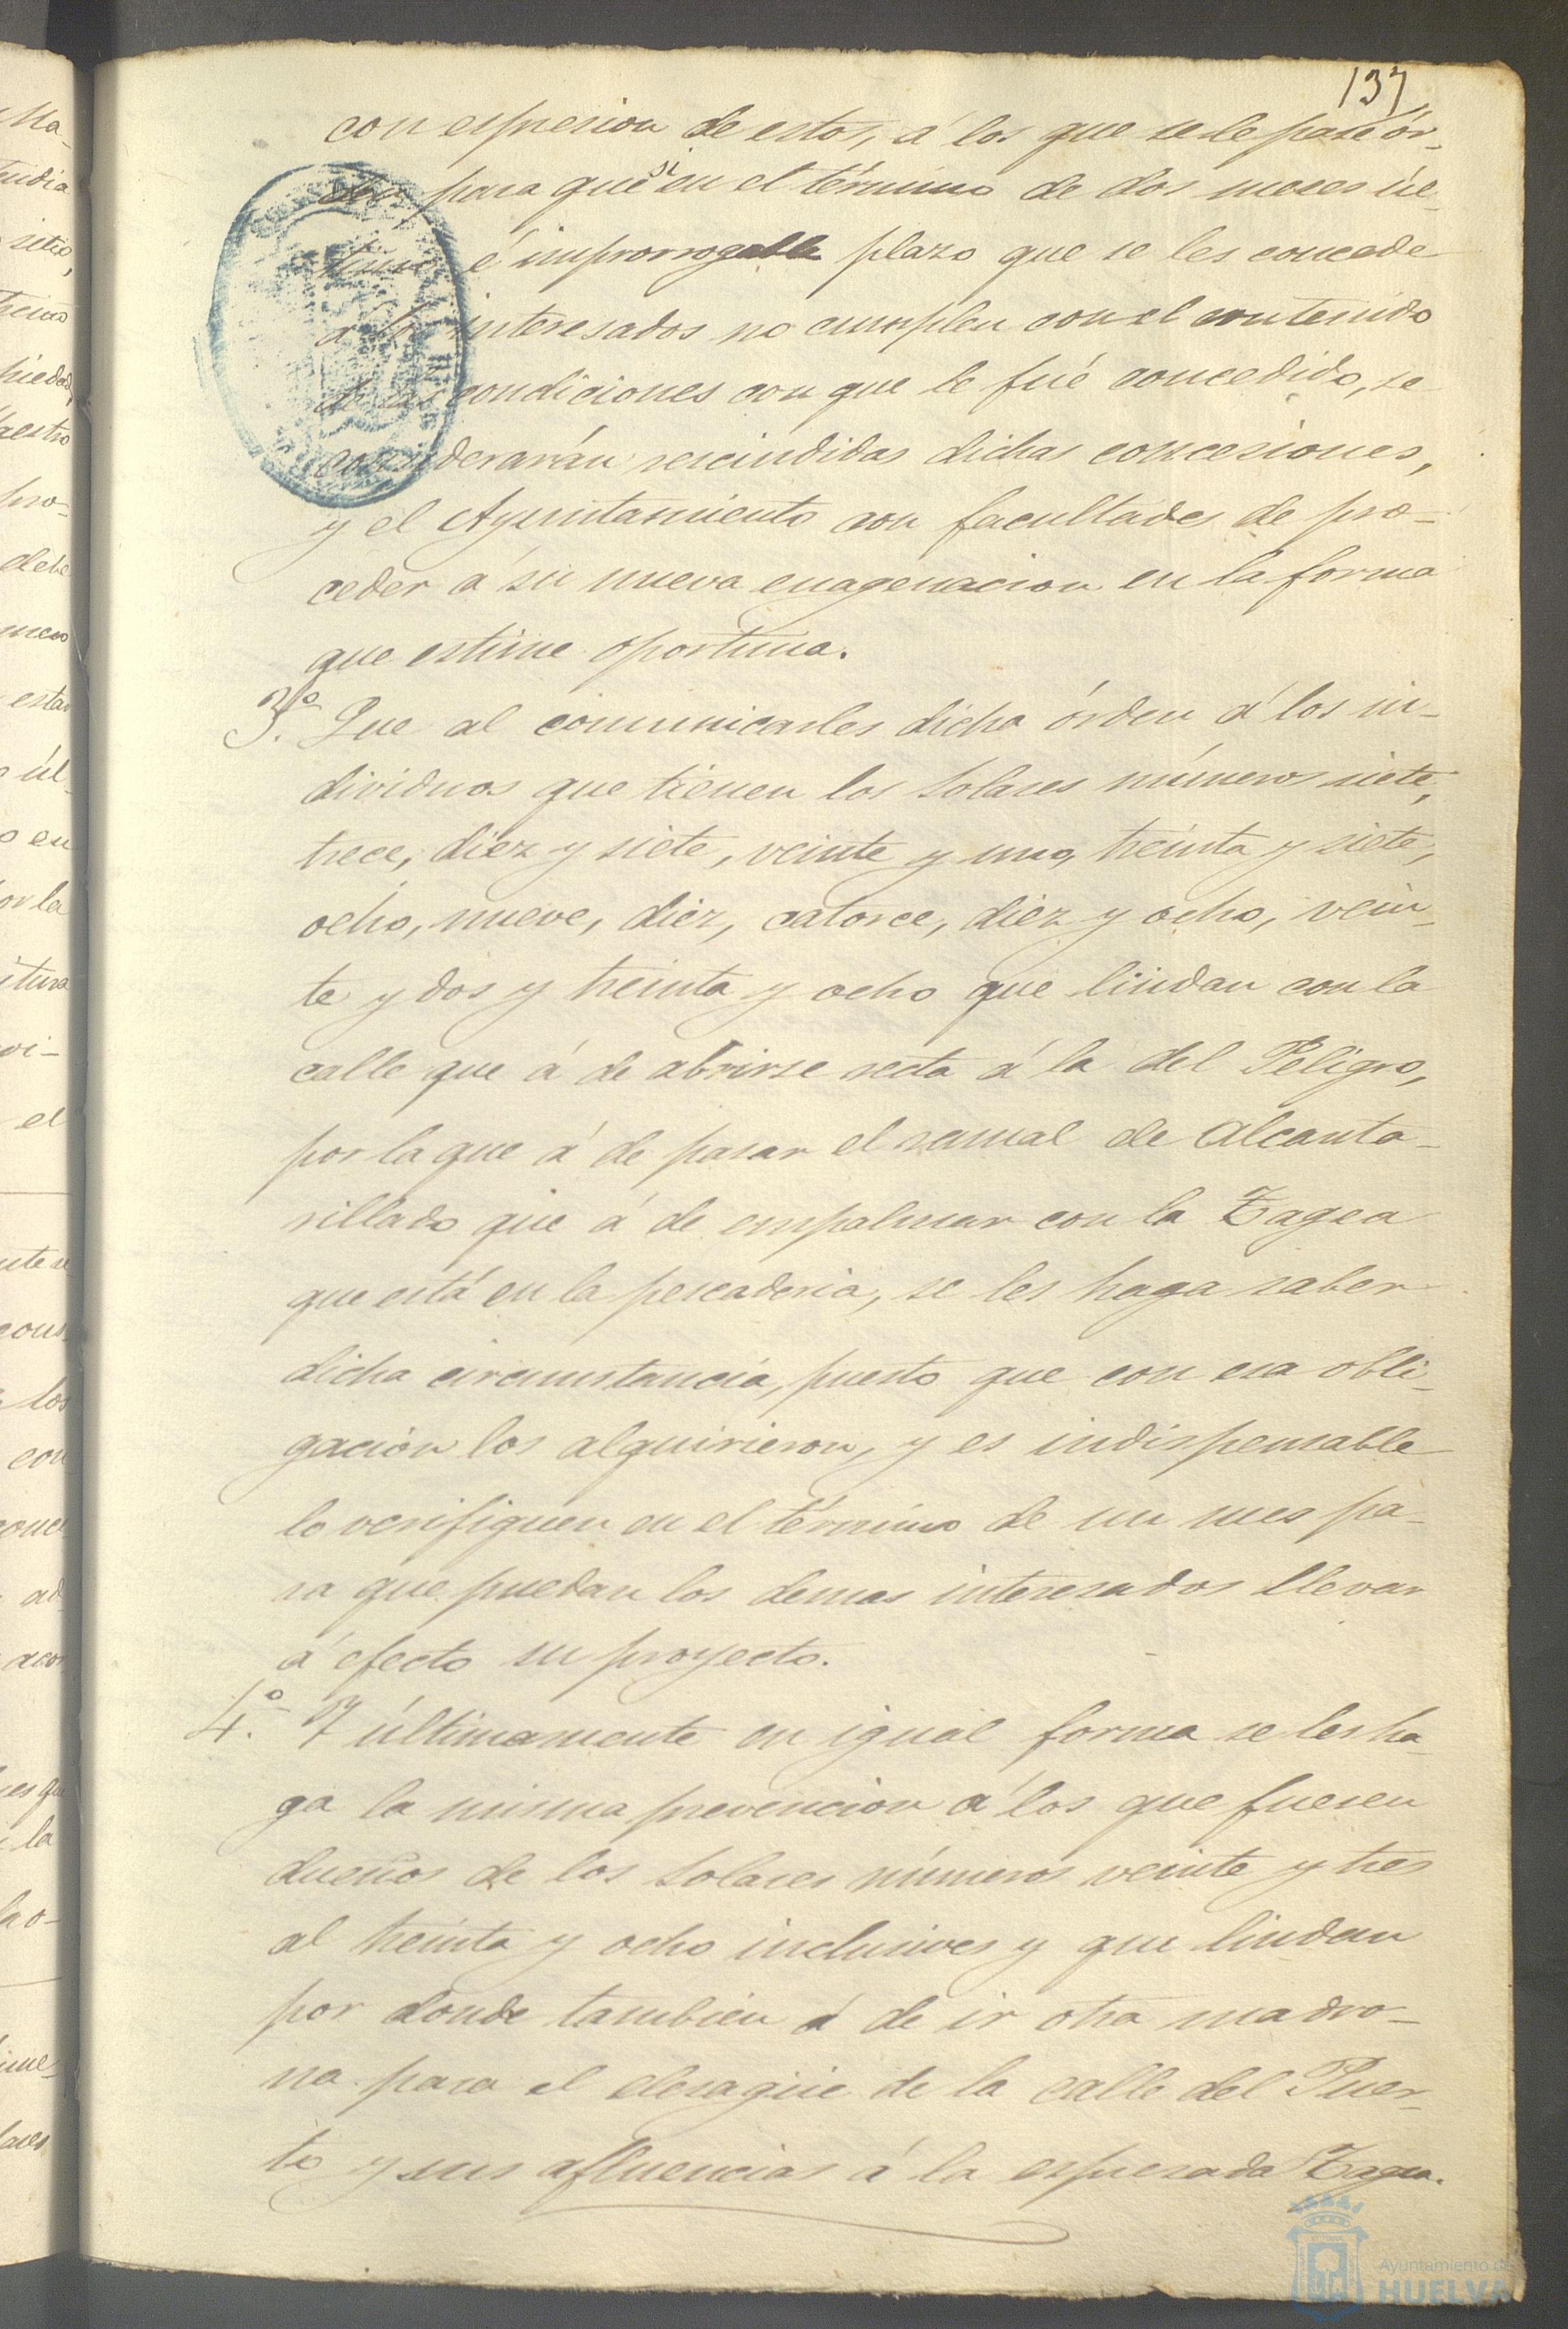 137
con espresion de estos, á los que se le pase ór-
den para que si en el término de dos meses úl-
timo é improrrogable plazo que se les concede
á los interesados no cumplen con el contenido
de las condiciones con que le fué concedido, se
considerarán rescindidas dichas concesiones,
y el Ayuntamiento con facultades de pro-
ceder á su nueva enagenacion en la forma
que estime oportuna.
3.º Que al comunicarles dicha órden á los in-
dividuos que tienen los solares números siete,
trece, diez y siete, veinte y uno, treinta y siete,
ocho, nueve, diez, catorce, diez y ocho, vein-
te y dos y treinta y ocho que lindan con la
calle que á de abrirse recta á la del Peligro,
por la que á de pasar el ramal de alcanta-
rillado que á de empalmar con la Zagea
que está en la pescaderia, se les haga saber
dicha circunstancia, puesto que con esa obli-
gacion los alquirieron, y es indispensable
lo verifiquen en el término de un mes pa-
ra que puedan los demas interesados llevar
á efecto su proyecto.
4.º Y últimamente en igual forma se les ha-
ga la misma prevencion á los que fueren
dueños de los solares números veinte y tres
al treinta y ocho inclusives y que lindan
por donde tambien á de ir otra madro-
na para el desagüe de la calle del Puer-
to y sus afluencias á la espresada Zagea.
Ayuntamiento de
HUELVA